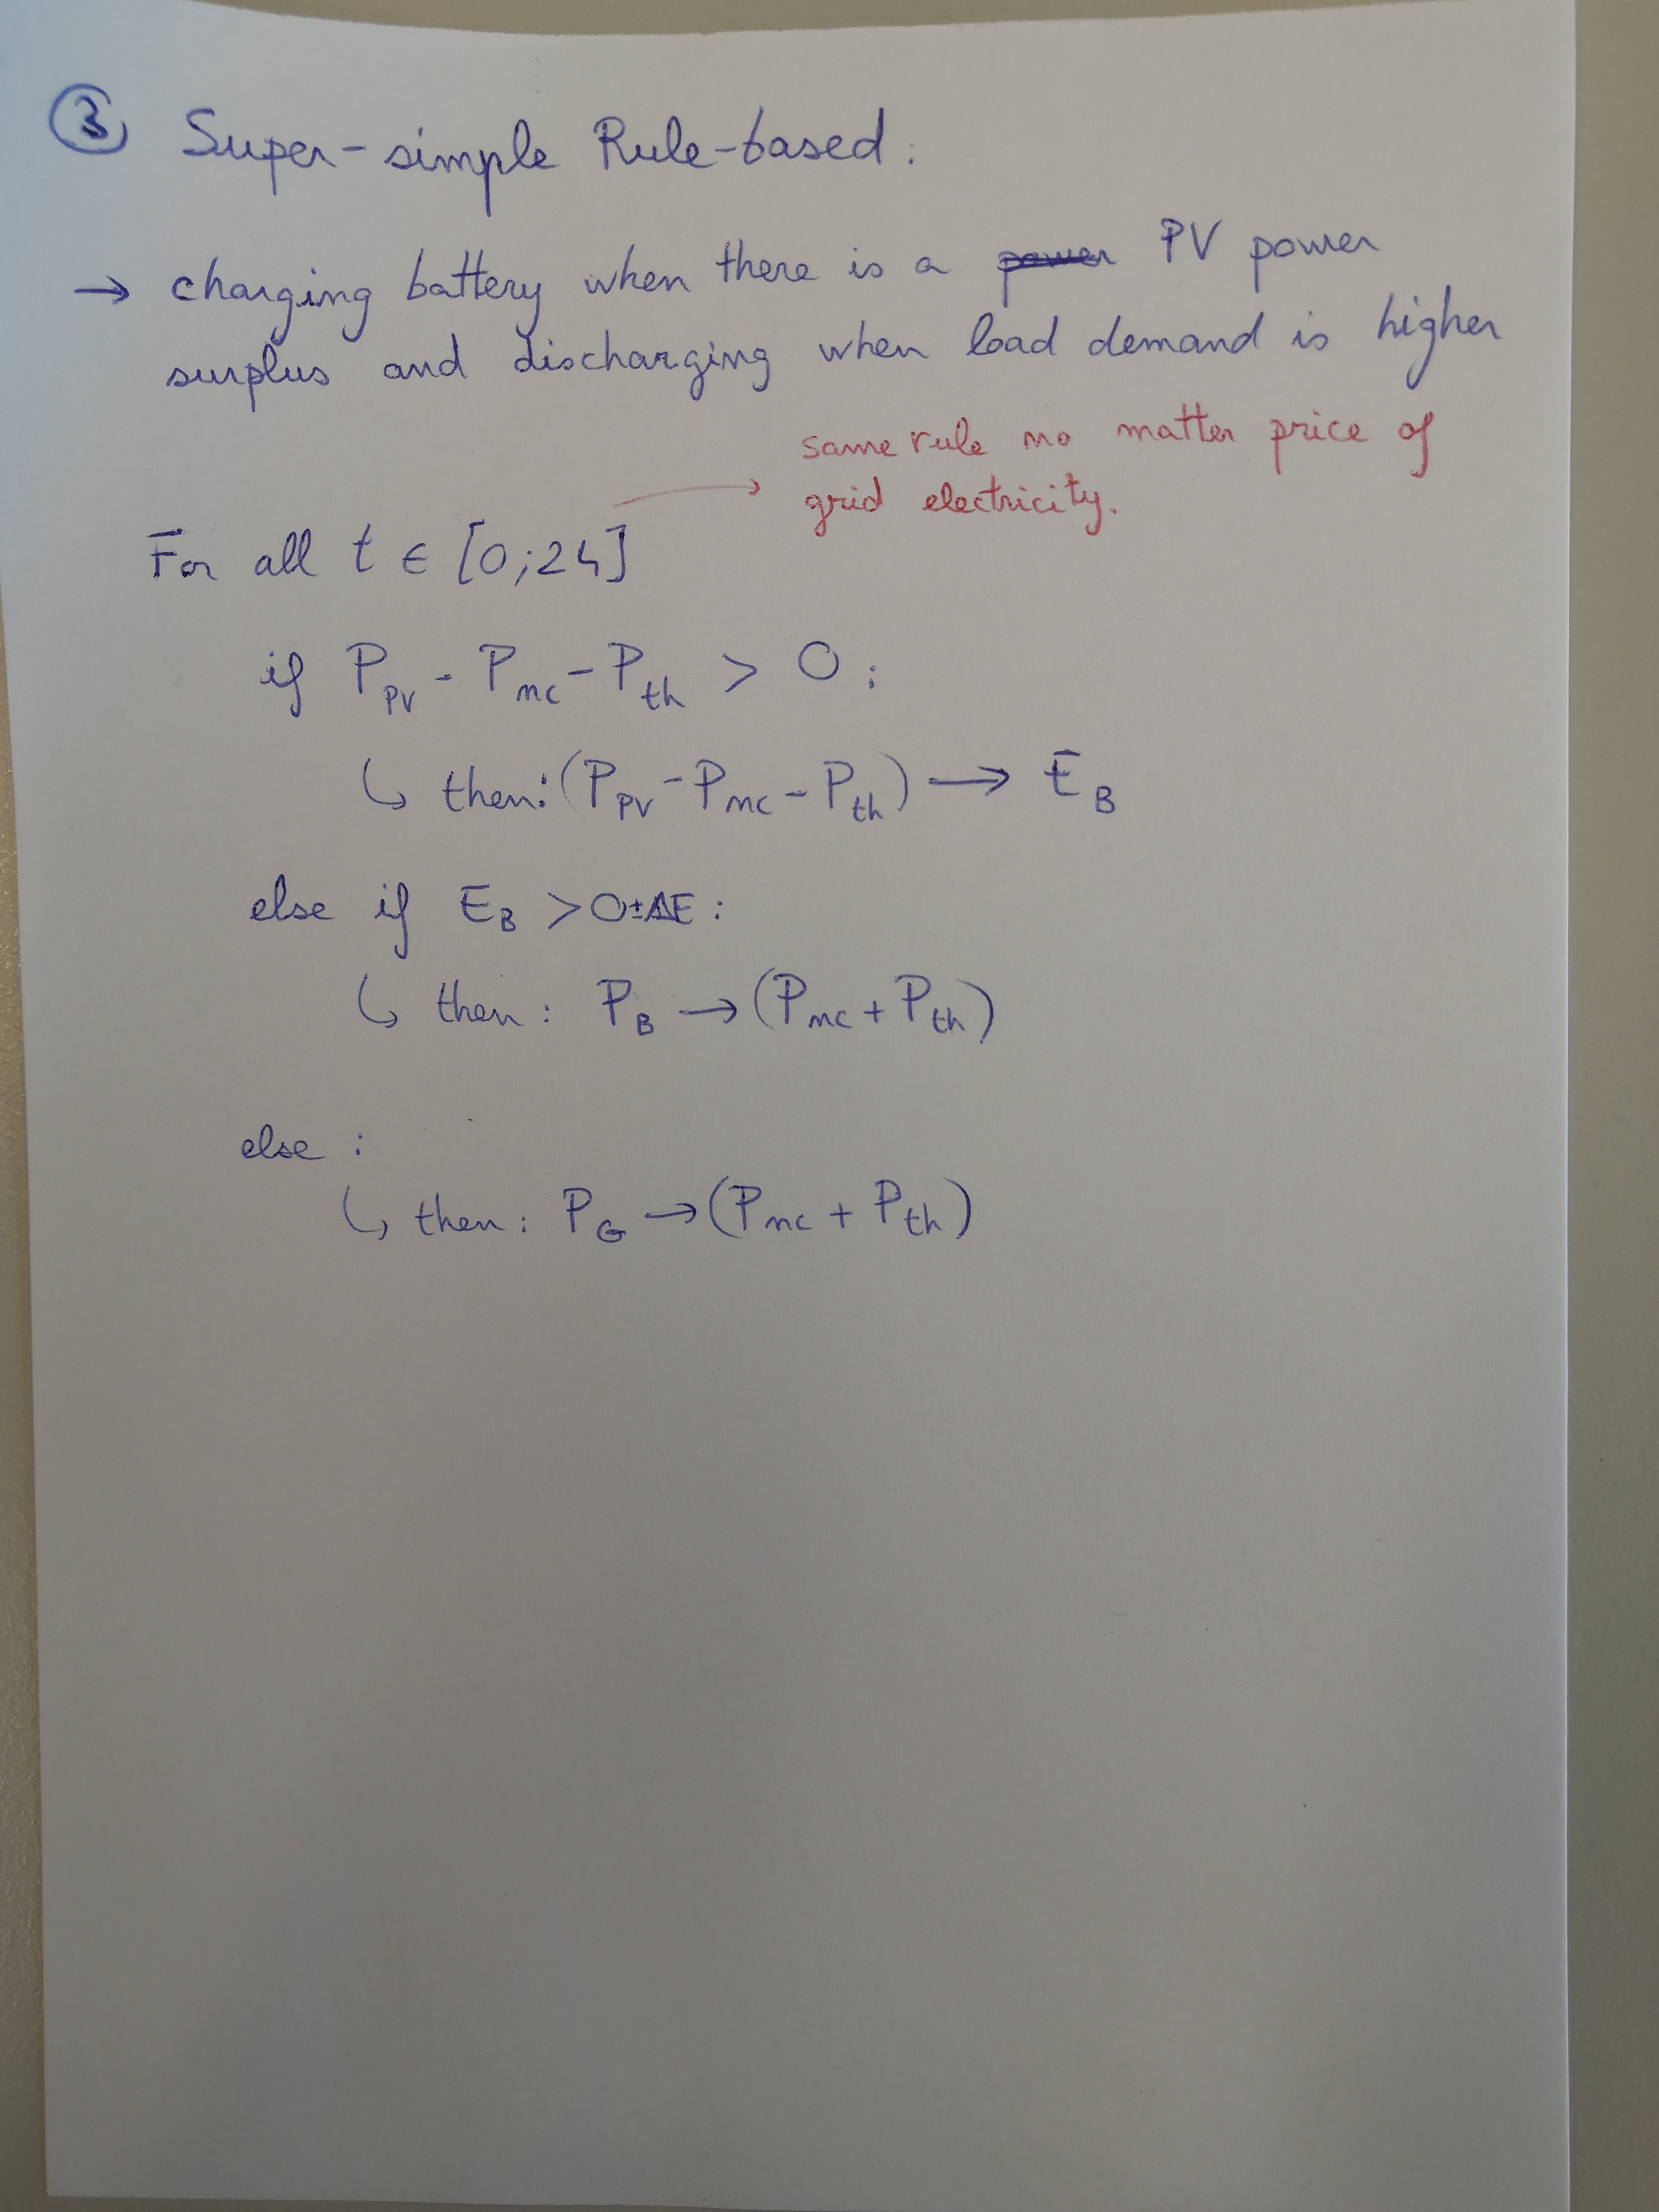 ③ Super-simple Rule-based:
→ charging battery when there is a power PV power
surplus and discharging when load demand is higher
same rule no matter price of
grid electricity.
For all t ∈ [0;24]
if P_PV - P_nc - P_th > 0:
↳ then: (P_PV - P_nc - P_th) → E_B
else if E_B > 0±ΔE:
↳ then: P_B → (P_nc + P_th)
else:
↳ then: P_G → (P_nc + P_th)